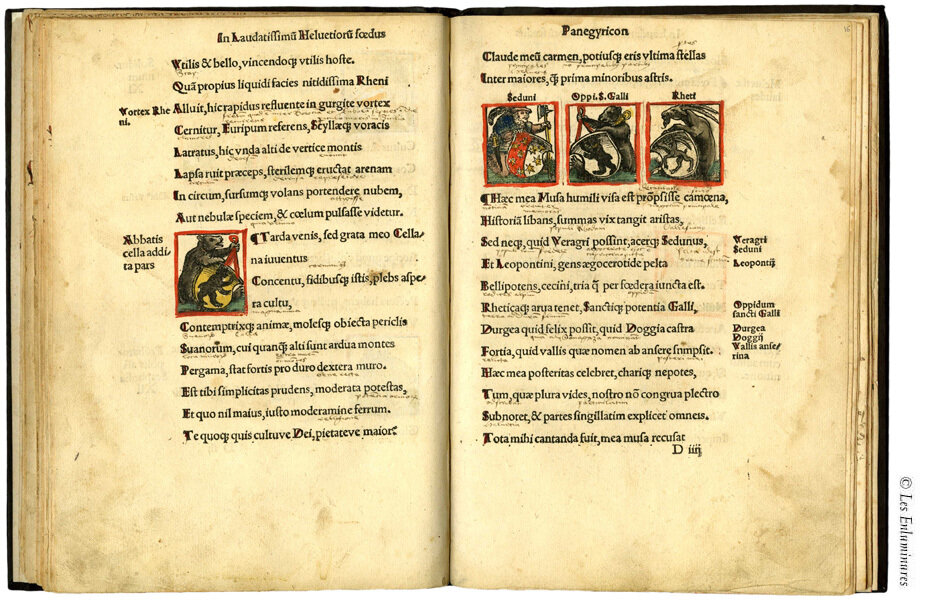 In Laudatissimū Heluetiorū fœdus
Vtilis & bello, vincendoq; vtilis hoste.
Quā propius liquidi facies nitidissima Rheni
Vortex Rhe
ni.
Alluit, hic rapidus refluente in gurgite vortex
Cernitur, Euripum referens, Scyllæq; voracis
Latratus, hic vnda alti de vertice montis
Lapsa ruit præceps, sterilemq; eructat arenam
In circum, sursumq; volans portendere nubem,
Aut nebulæ speciem, & cœlum pulsasse videtur.
Abbatis
cella addi
ta pars
¶ Tarda venis, sed grata meo Cella-
na iuuentus
Concentu, fidibusq; istis, plebs aspe-
ra cultu,
Contemptrixq; animæ, molesq; obiecta periclis
Suanorum, cui quanq̄ alti sunt ardua montes
Pergama, stat fortis pro duro dextera muro.
Est tibi simplicitas prudens, moderata potestas,
Et quo nil maius, iusto moderamine ferrum.
Te quoq; quis cultuve Dei, pietateve maior?
Panegyricon
16
Claude meū carmen, potiusq; eris vltima stellas
Inter maiores, q̄ prima minoribus astris.
Seduni
Oppi. S. Galli
Rheti
¶ Hæc mea Musa humili visa est prōpsisse camœna,
Historiā libans, summas vix tangit aristas,
Sed neq; quid Veragri possint, acerq; Sedunus,
Veragri
Seduni
Et Leopontini, gens ægocerotide pelta
Leopontij
Bellipotens, cecini, tria q̄ per fœdera iuncta est.
Rheticaq; arua tenet, Sanctiq; potentia Galli,
Oppidum
sancti Galli
Durgea quid felix possit, quid Doggia castra
Durgea
Doggij
Fortia, quid vallis quæ nomen ab ansere sumpsit.
Wallis anse-
rina
Hæc mea posteritas celebret, chariq; nepotes,
Tum, quæ plura vides, nostro nō congrua plectro
Subnotet, & partes singillatim explicet omneis.
Tota mihi cantanda fuit, mea musa recusat
D iiij
© Les Enluminures